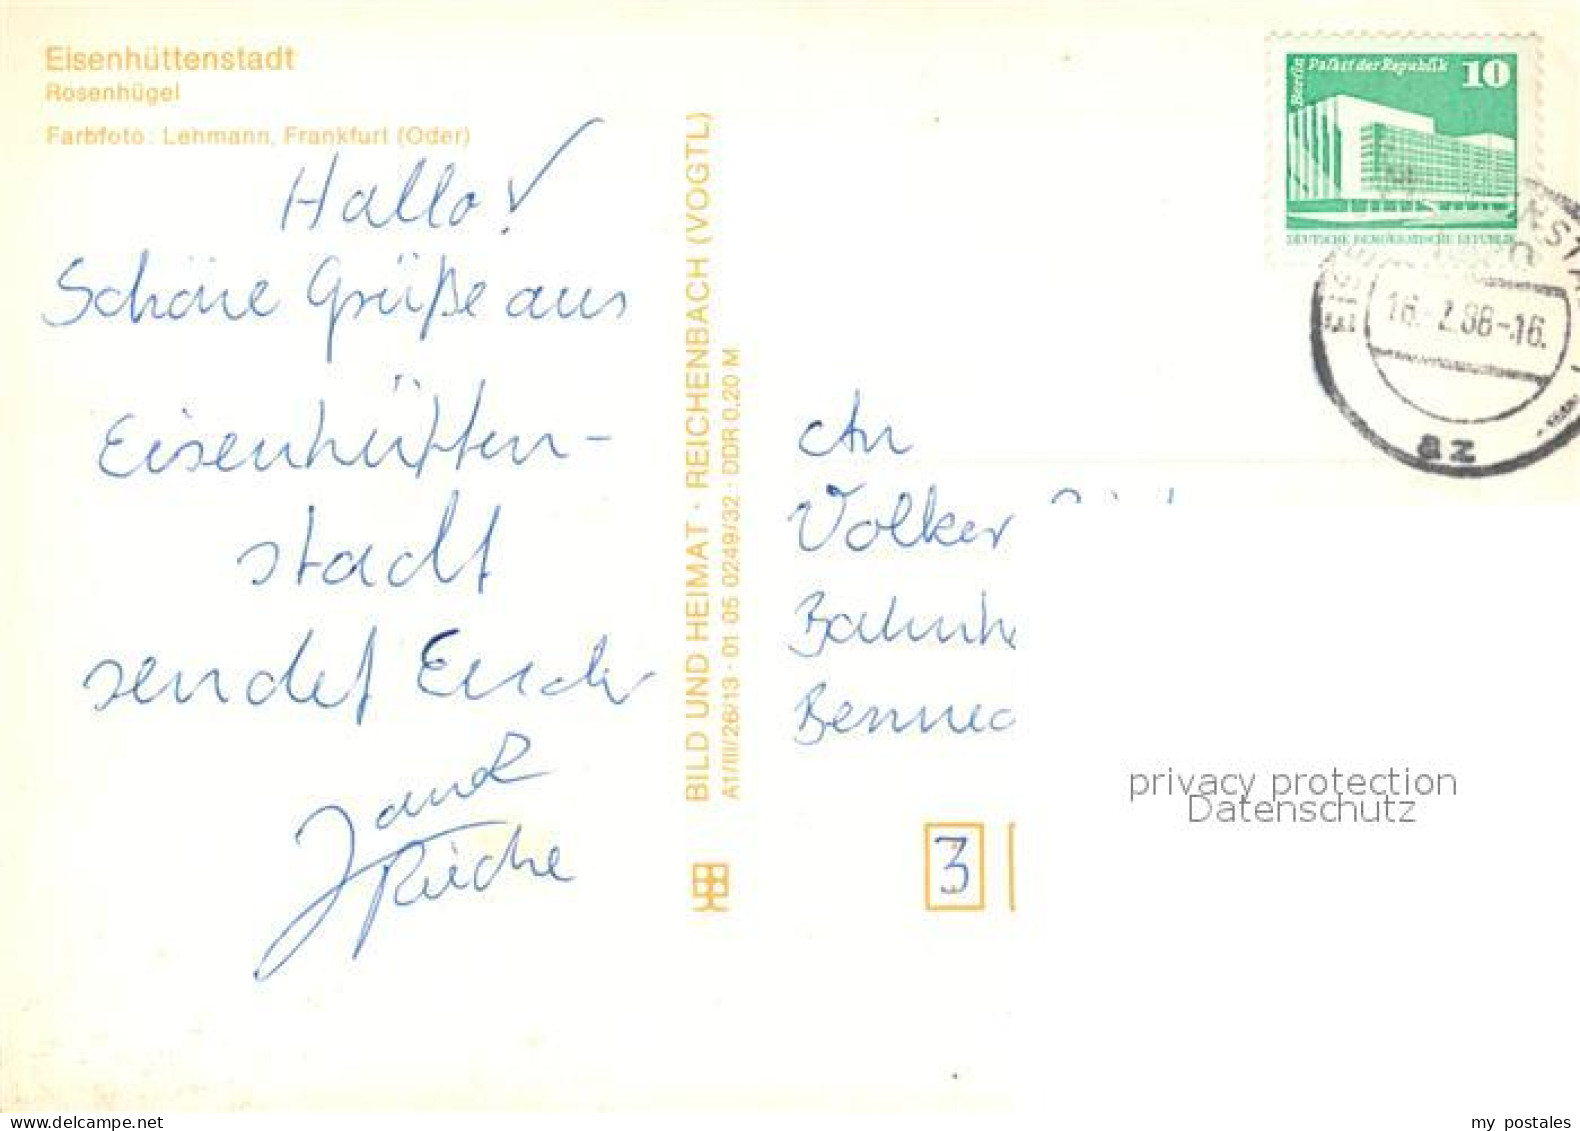 Eisenhüttenstadt
Rosenhügel
Farbfoto: Lehmann, Frankfurt (Oder)
Hallo!
Schöne Grüße aus
Eisenhütten-
stadt
sendet Euch
BILD UND HEIMAT · REICHENBACH (VOGTL)
A1/III/26/13 · 01 05 0249/32 · DDR 0.20 M
Berlin Palast der Republik 10
DEUTSCHE DEMOKRATISCHE REPUBLIK
16.-7.88-16.
az
An
Volker
Bahnh
Bennec
3
privacy protection
Datenschutz
my postales